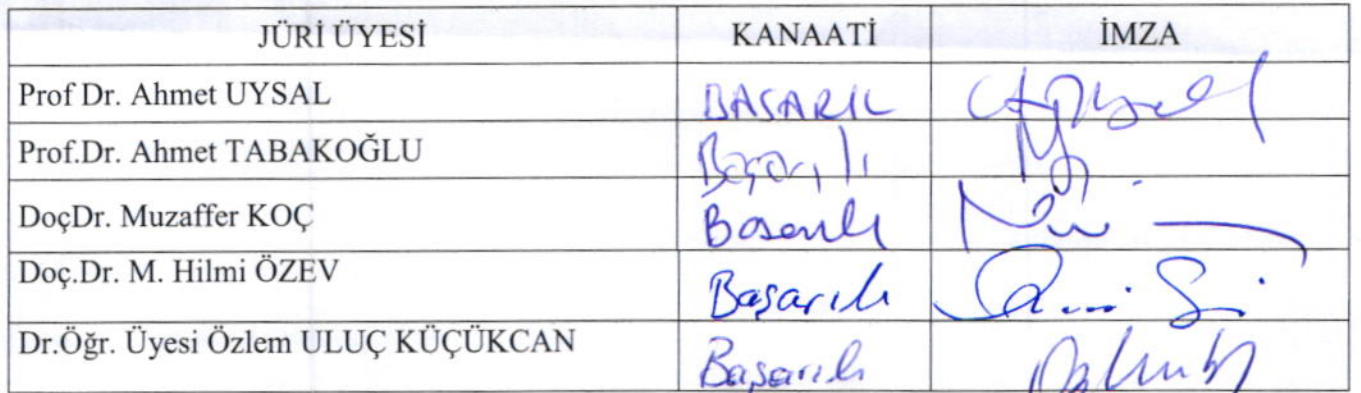 JÜRİ ÜYESİ KANAATİ İMZA
Prof Dr. Ahmet UYSAL BAŞARILI
Prof.Dr. Ahmet TABAKOĞLU Başarılı
DoçDr. Muzaffer KOÇ Başarılı
Doç.Dr. M. Hilmi ÖZEV Başarılı
Dr.Öğr. Üyesi Özlem ULUÇ KÜÇÜKCAN Başarılı